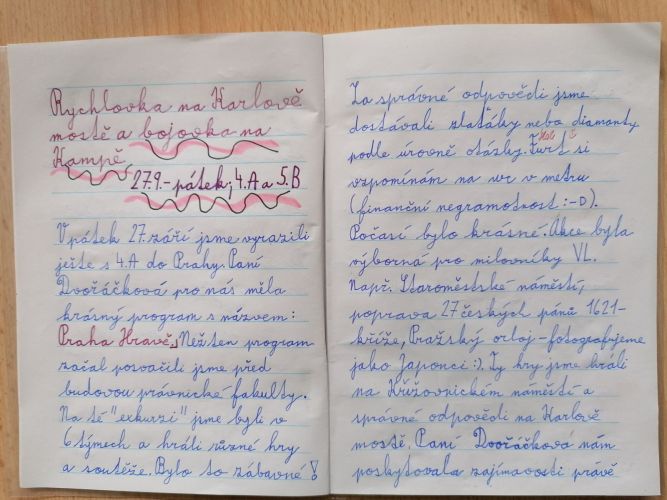 Rychlovka na Karlově
mostě a bojovka na
Kampě
27.9.-pátek; 4.A a 5.B
V pátek 27. září jsme vyrazili
ješte s 4.A do Prahy. Paní
Dvořáčková pro nás měla
krásný program s názvem:
Praha Hravě. Než ten program
začal posvačili jsme před
budovou právnické fakulty.
Na té "exkurzi" jsme byli v
6 týmech a hráli různé hry
a soutěže. Bylo to zábavné!
Za správné odpovědi jsme
dostávali zlaťáky nebo diamanty
podle úrovně otázky. Furt si
vzpomínám na wc v metru
(finanční negramotnost :-D).
Počasí bylo krásné. Akce byla
výborná pro milovníky VL.
Např. Staroměstské náměstí,
poprava 27 českých pánů 1621-
kříže, Pražský orloj - fotografujeme
jako Japonci :). Ty hry jsme hráli
na Křížovnickém náměstí a
správné odpovědi na Karlově
mostě. Paní Dvořáčková nám
poskytovala zajímavosti právě